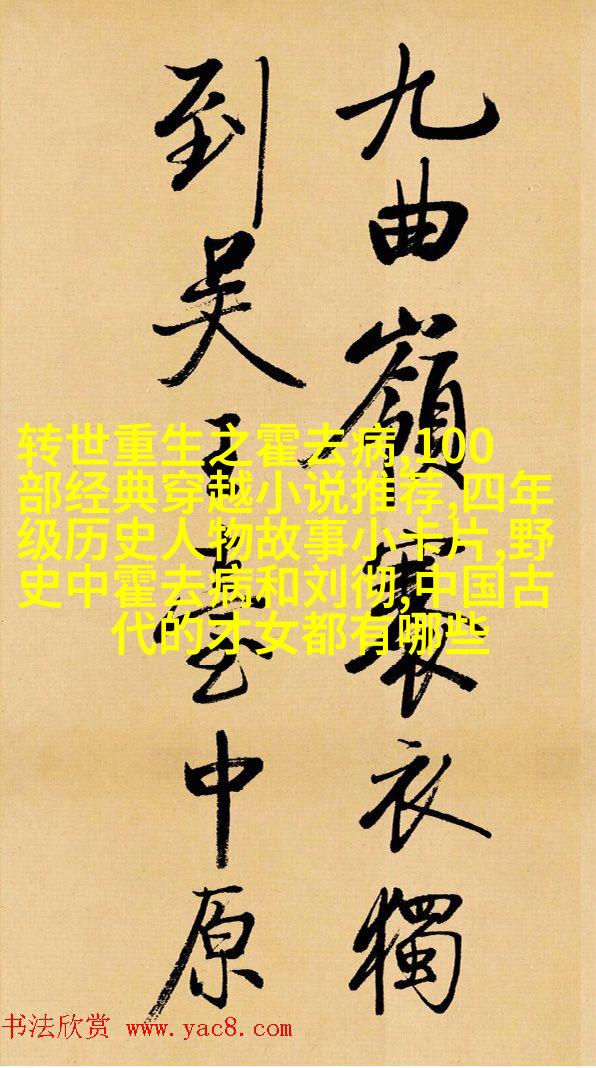 九曲嶺褰衣獨
到吴王臺中原
转世重生之霍去病,100
部经典穿越小说推荐,四年
级历史人物故事小卡片,野
史中霍去病和刘彻,中国古
代的才女都有哪些
书法欣赏 www.yac8.com